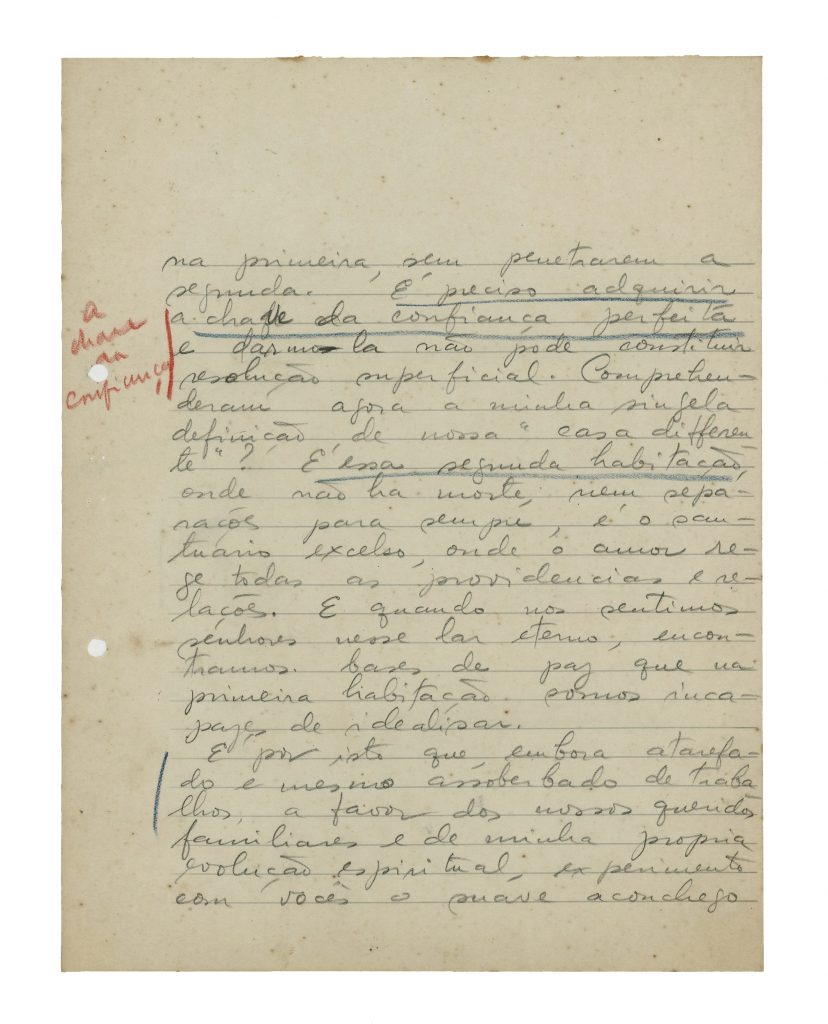 na primeira, sem penetrarem a
segunda. É preciso adquirir
a chave da confiança perfeita
e darmo-la não póde constituir
resolução superficial. Comprehen-
deram agora a minha singela
definição, de nossa "casa differen
te"? É essa segunda habitação,
onde não ha morte, nem sepa-
rações para sempre, é o san-
tuário excelso, onde o amor re-
ge todas as providencias e re-
lações. E quando nos sentimos
senhores nesse lar eterno, encon-
tramos bases de paz que na
primeira habitação somos inca-
pazes de idealisar.
E' por isto que, embora atarefa-
do e mesmo assoberbado de traba
lhos, a favor dos nossos queridos
familiares e de minha propria
evolução espiritual, experimento
com vocês o suave aconchego
a
chave
da
confiança